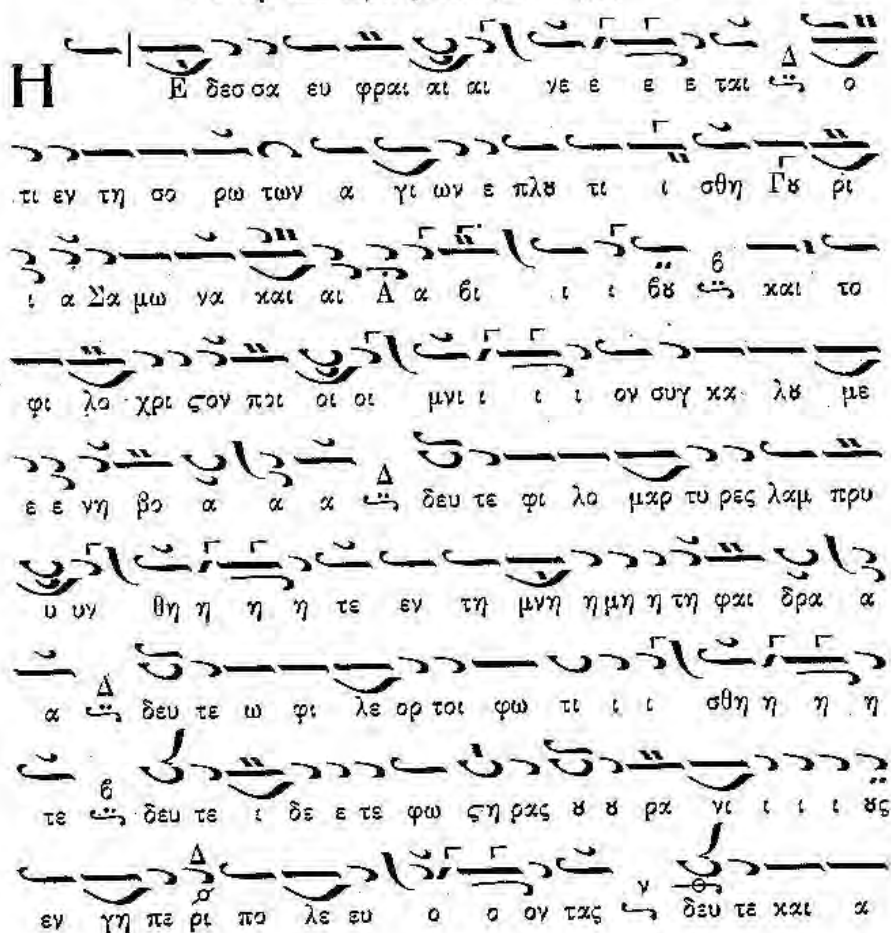 Η Ε δεσ σα ευ φραι αι αι νε ε ε ε ται Δ ο
τι εν τη σο ρω των α γι ων ε πλȣ τι ι σθη Γȣ ρι
ι α Σα μω να και αι Α α βι ι ι βȣ β και το
φι λο χρι ϛον ποι οι οι μνι ι ι ι ον συγ κα λȣ με
ε ε νη βο α α α Δ δευ τε φι λο μαρ τυ ρες λαμ πρυ
υ υν θη η η η τε εν τη μνη η μη η τη φαι δρα α
α Δ δευ τε ω φι λε ορ τοι φω τι ι ι σθη η η η
τε β δευ τε ι δε ε τε φω ϛη ρας ȣ ȣ ρα νι ι ι ι ȣς
εν γη πε ρι Δ πο λε ευ ο ο ον τας γ δευ τε και α